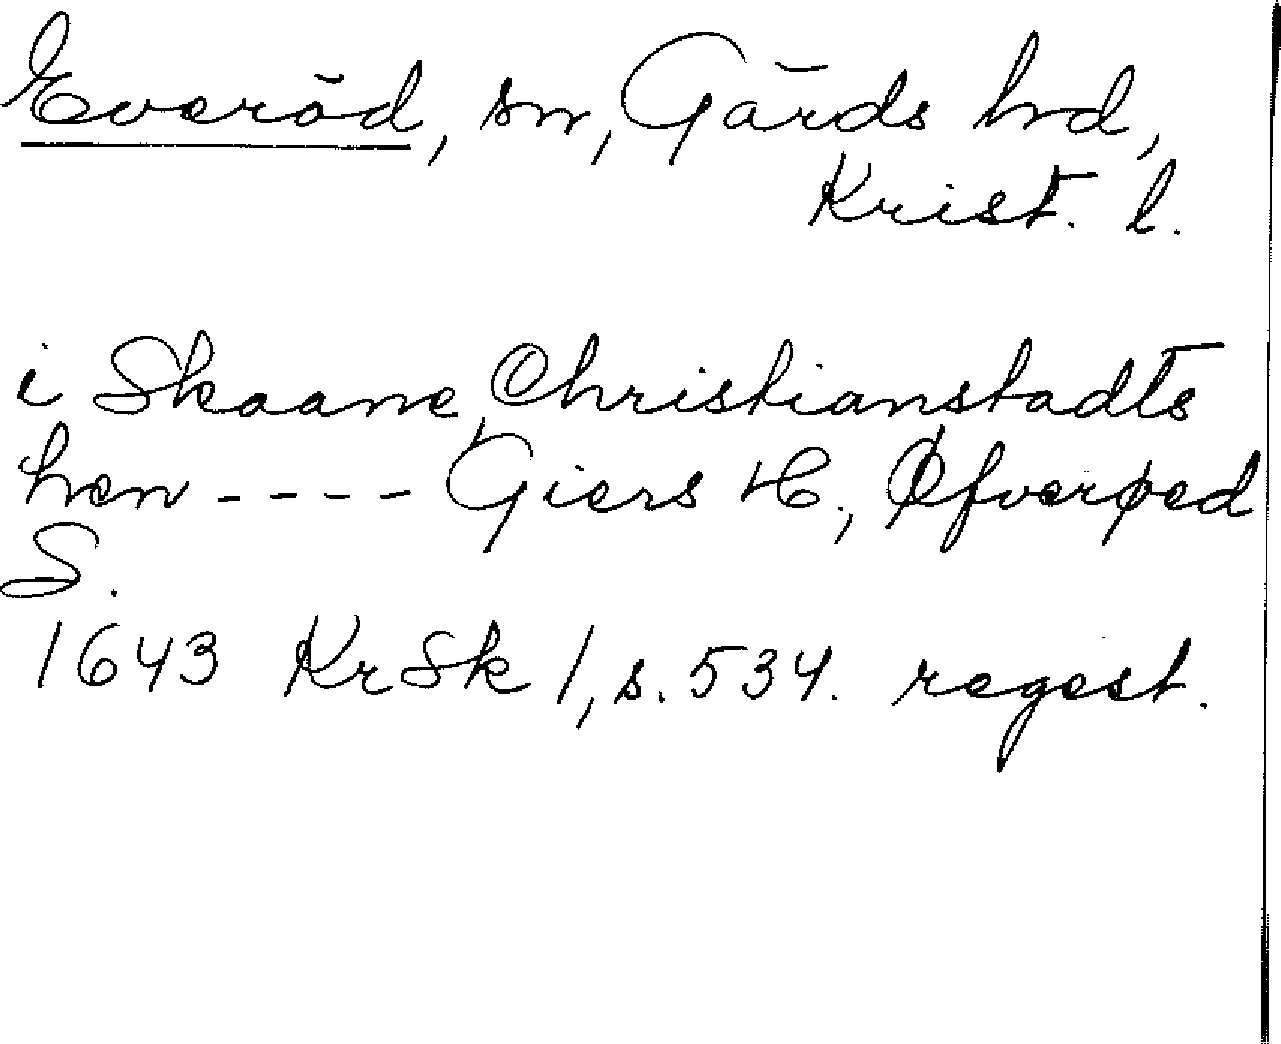 Everöd, sn, Gärds hrd,
Krist. l.
i Skaane, Christianstadts
hen ---- Giers H., Øfverøed
S.
1643 KrSk 1, s. 534. regest.